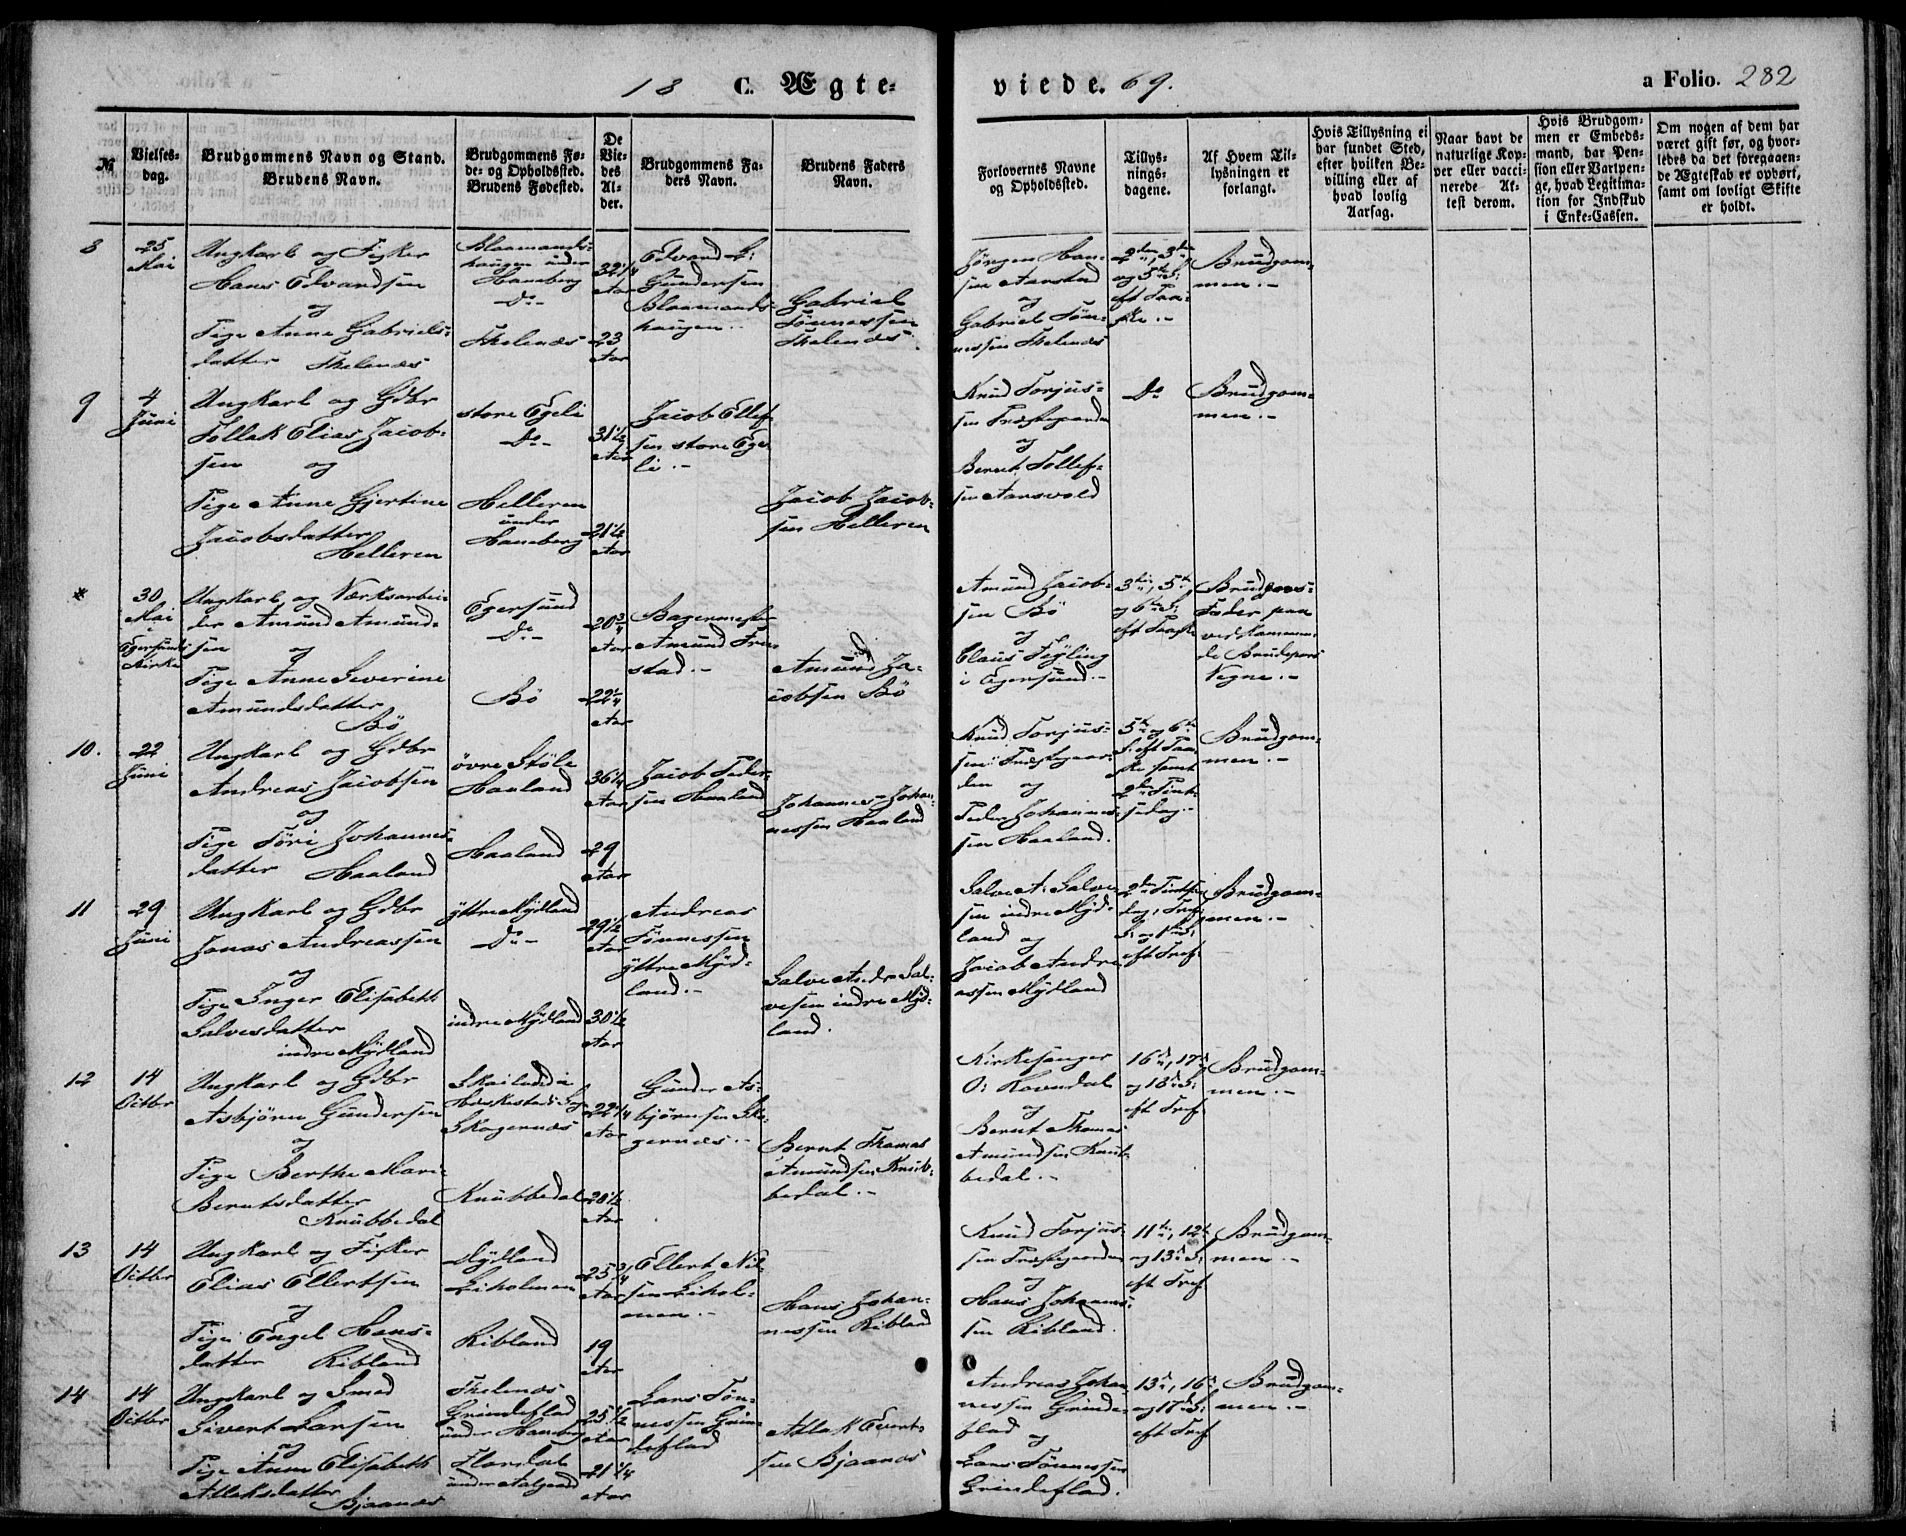 18 C. Ægte-
viede. 69.
a Folio. 282
№
Vielses-
dag.
Brudgommens Navn og Stand.
Brudens Navn.
Brudgommens Fø-
de- og Opholdsted.
Brudens Fødested.
De
Vie-
des
Al-
der.
Brudgommens Fa-
ders Navn.
Brudens Faders
Navn.
Forlovernes Navne
og Opholdsted.
Tillys-
nings-
dagene.
Af Hvem Til-
lysningen er
forlangt.
Hvis Tillysning ei
har fundet Sted,
efter hvilken Be-
villing eller af
hvad lovlig
Aarsag.
Naar havt de
naturlige Kop-
per eller vacci-
nerede At-
test derom.
Hvis Brudgom-
men er Embeds-
mand, har Pen-
sion eller Vartpen-
ge, hvad Legitima-
tion for Indskud
i Enke-Cassen.
Om nogen af dem har
været gift før, og hvor-
ledes da det foregaaen-
de Ægteskab er ophørt,
samt om lovligt Skifte
er holdt.
8
25
Mai
Ungkarl og Fisker
Hans Edvardsen
og
Pige Anne Gabriels-
datter Skelenæs
Blaamands-
haugen under
Haneberg
Do-
Skelenæs
32 1/4
Aar
23
Aar
Edvard L:
Gundersen
Blaamands-
haugen.
Gabriel
Tønnessen
Skelenæs
Jørgen Han-
sen Aarstad
og
Gabriel Tøn-
nessen Skelenæs
2den, 3die
og 5te S:
eft Paa-
ske.-
Brudgom-
men.-
9
4
Juni
Ungkarl og Gdbr
Tollak Elias Jacob-
sen og
Pige Anne Gjertine
Jacobsdatter
Helleren
store Egeli
Do-
Helleren
under
Haneberg
31 1/2
Aar
21 1/2
Aar
Jacob Ellef-
sen store Ege-
li.-
Jacob Jacob-
sen Helleren
Knud Torjus-
sen Præstegaarden
og
Bernt Tollef-
sen Aarsvold
Do
Brudgom-
men.-
*
30
Mai
i
Egersunds
Kirke
Ungkarl og Værksarbei-
der Amund Amund-
sen og
Pige Anne Severine
Amundsdatter
Bø
Egersund
Do-
Bø
20 3/4
Aar
22 1/4
Aar
Bagermester
Amund Fre-
stad.-
Amund Ja-
cobsen Bø
Amund Jacob-
sen Bø
og
Claus Feyling
i Egersund.-
3die, 5te
og 6te S:
eft Paaske
Brudgoms-
Fader paa
vedkommen-
de Brudepars
Vegne.-
10.
22
Juni
Ungkarl og Gdbr
Andreas Jacobsen
og
Pige Tøri Johannes-
datter Haaland
øvre Støle
Haaland
Haaland
36 1/4
Aar
29
Aar
Jacob Peder-
sen Haaland
Johannes Johan-
nessen Haaland
Knud Torjus-
sen Præstegaar-
den og
Peder Johannes-
sen Haaland.
5te og 6te
S: eft Paa-
ske samt
2den Pint-
sedag.-
Brudgom-
men.-
11
29
Juni
Ungkarl og Gdbr
Jonas Andreassen
og
Pige Inger Elisabeth
Salvesdatter
indre Mydland
yttre Mydland
Do-
indre Mydland
29 1/2
Aar
30 1/2
Aar
Andreas
Tønnessen
yttre Myd-
land.-
Salve Andr. Sal-
vesen indre Myd-
land.
Salve A: Salve-
sen indre Myd-
land og
Jacob Andre-
assen Mydland
2den Pintse-
dag, Tref:
S: og 1ste S:
eft Tref.
Brudgom-
men.-
12
14
Octbr
Ungkarl og Gdbr
Asbjørn Gundersen
og
Pige Berthe Marie
Berntsdatter
Knubbedal
Heskestads Sogn
Skogernæs
Knubbedal
22 1/4
Aar
20 1/2
Aar
Gunder As-
bjørnsen Sko-
gernæs.-
Bernt Thomas
Amundsen Knub-
bedal.-
Kirkesanger
O: Ravndal
og
Bernt Thomas
Amundsen Knub-
bedal.-
16de, 17de
og 18de S:
eft Tref.
Brudgom-
men.-
13
14
Octbr
Ungkarl og Fisker
Elias Ellertsen
og
Pige Engel Hans-
datter Ribland
Mydland
Liholmen
Ribland
25 3/4
Aar
19
Aar
Ellert Niel-
sen Lihol-
men.-
Hans Johan-
nessen Ribland
Knud Torjus-
sen Præstegaarden
og
Hans Johannes-
sen Ribland.
11te, 12te
og 13de S:
eft Tref.
Brudgom-
men.-
14
14
Octbr
Ungkarl og Smed
Sivert Larsen
og
Pige Anne Elisabeth
Atlaksdatter
Bjaanæs
Skelenæs
Grindeflad
under Haneberg
under Aalgaard
25 1/2
Aar
21 1/4
Aar
Lars Tøn-
nessen Grin-
deflad
Atlak Evert-
sen Bjaanæs
Andreas Johan-
nessen Grinde-
flad og
Lars Tønnessen
Grindeflad.
13de, 16de
og 17de S:
eft Tref
Brudgom-
men.-